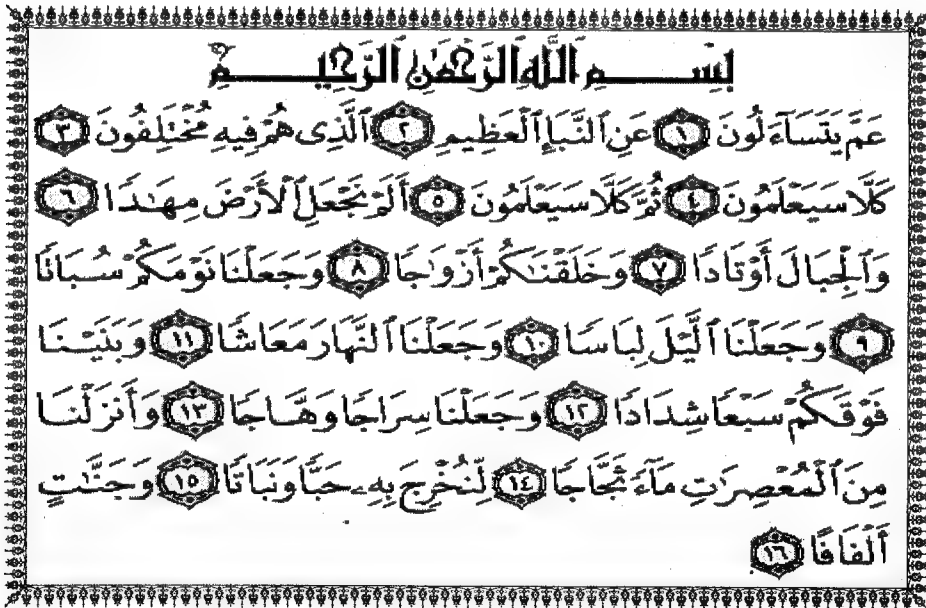 بِسْمِ ٱللَّهِ ٱلرَّحْمَٰنِ ٱلرَّحِيمِ
عَمَّ يَتَسَآءَلُونَ ١ عَنِ ٱلنَّبَإِ ٱلْعَظِيمِ ٢ ٱلَّذِى هُمْ فِيهِ مُخْتَلِفُونَ ٣
كَلَّا سَيَعْلَمُونَ ٤ ثُمَّ كَلَّا سَيَعْلَمُونَ ٥ أَلَمْ نَجْعَلِ ٱلْأَرْضَ مِهَٰدًا ٦
وَٱلْجِبَالَ أَوْتَادًا ٧ وَخَلَقْنَٰكُمْ أَزْوَٰجًا ٨ وَجَعَلْنَا نَوْمَكُمْ سُبَاتًا
٩ وَجَعَلْنَا ٱلَّيْلَ لِبَاسًا ١٠ وَجَعَلْنَا ٱلنَّهَارَ مَعَاشًا ١١ وَبَنَيْنَا
فَوْقَكُمْ سَبْعًا شِدَادًا ١٢ وَجَعَلْنَا سِرَاجًا وَهَّاجًا ١٣ وَأَنزَلْنَا
مِنَ ٱلْمُعْصِرَٰتِ مَآءً ثَجَّاجًا ١٤ لِّنُخْرِجَ بِهِۦ حَبًّا وَنَبَاتًا ١٥ وَجَنَّٰتٍ
أَلْفَافًا ١٦